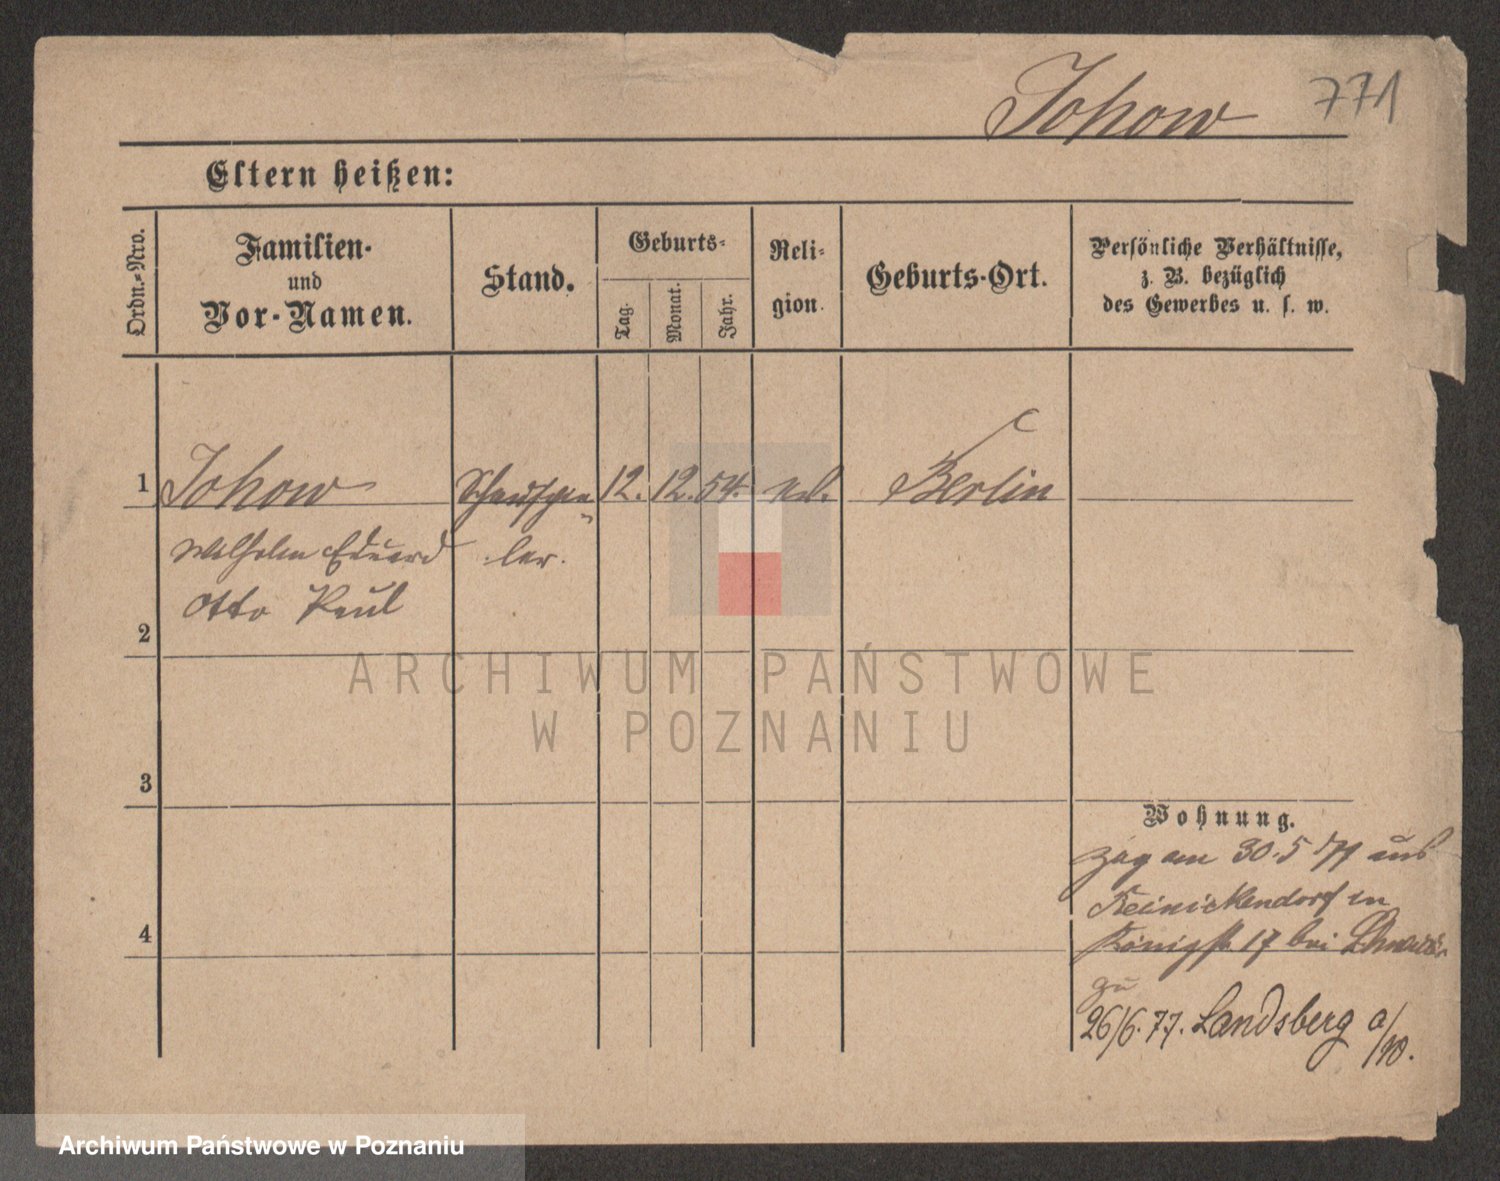 Johow 771
Eltern heißen:
Ordn.-Nro.
Familien-
und
Vor-Namen.
Stand.
Geburts-
Tag.
Monat.
Jahr.
Reli-
gion.
Geburts-Ort.
Persönliche Verhältnisse,
z. B. bezüglich
des Gewerbes u. s. w.
1 Johow Schauspie- 12. 12. 54. Berlin
Wilhelm Eduard ler.
Otto Paul
2
3
4
Wohnung.
Zug am 30.5 77 aus
Reinickendorf in
Königstr 17 bei
zu
26/6.77. Landsberg a/W.
ARCHIWUM PAŃSTWOWE
W POZNANIU
Archiwum Państwowe w Poznaniu